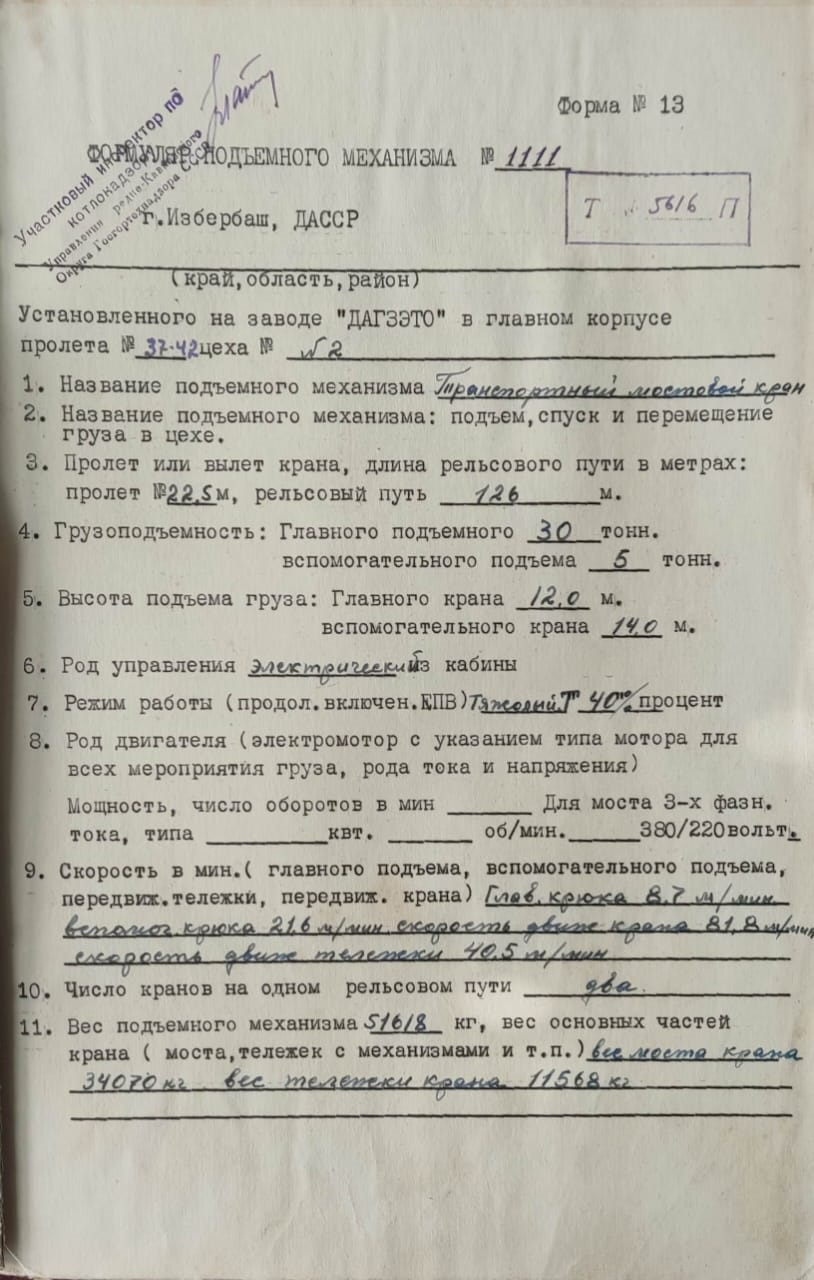 Форма № 13
Участковый инспектор по
котлонадзору
Управления
Округа Госгортехнадзора СССР
ФОРМУЛЯР ПОДЪЕМНОГО МЕХАНИЗМА № 1111
Т 5616 П
г.Избербаш, ДАССР
(край,область,район)
Установленного на заводе "ДАГЗЭТО" в главном корпусе
пролета № 37-42 цеха № №2
1. Название подъемного механизма Транспортный мостовой кран
2. Название подъемного механизма: подъем,спуск и перемещение
груза в цехе.
3. Пролет или вылет крана, длина рельсового пути в метрах:
пролет №22,5м, рельсовый путь 126 м.
4. Грузоподъемность: Главного подъемного 30 тонн.
вспомогательного подъема 5 тонн.
5. Высота подъема груза: Главного крана 12,0 м.
вспомогательного крана 14,0 м.
6. Род управления электрический из кабины
7. Режим работы (продол.включен.ЕПВ) Тяжолый Т 40% процент
8. Род двигателя (электромотор с указанием типа мотора для
всех мероприятия груза, рода тока и напряжения)
Мощность, число оборотов в мин ______ Для моста 3-х фазн.
тока, типа ________ квт. ______ об/мин. _____380/220вольт.
9. Скорость в мин.( главного подъема, вспомогательного подъема,
передвиж.тележки, передвиж. крана) Глав. крюка 8,7 м/мин
вспомог. крюка 21,6 м/мин скорость движ крана 81,8 м/мин
скорость движ тележки 40,5 м/мин
10. Число кранов на одном рельсовом пути два.
11. Вес подъемного механизма 51618 кг, вес основных частей
крана ( моста,тележек с механизмами и т.п.) вес моста крана
34070 кг вес тележки крана 11568 кг